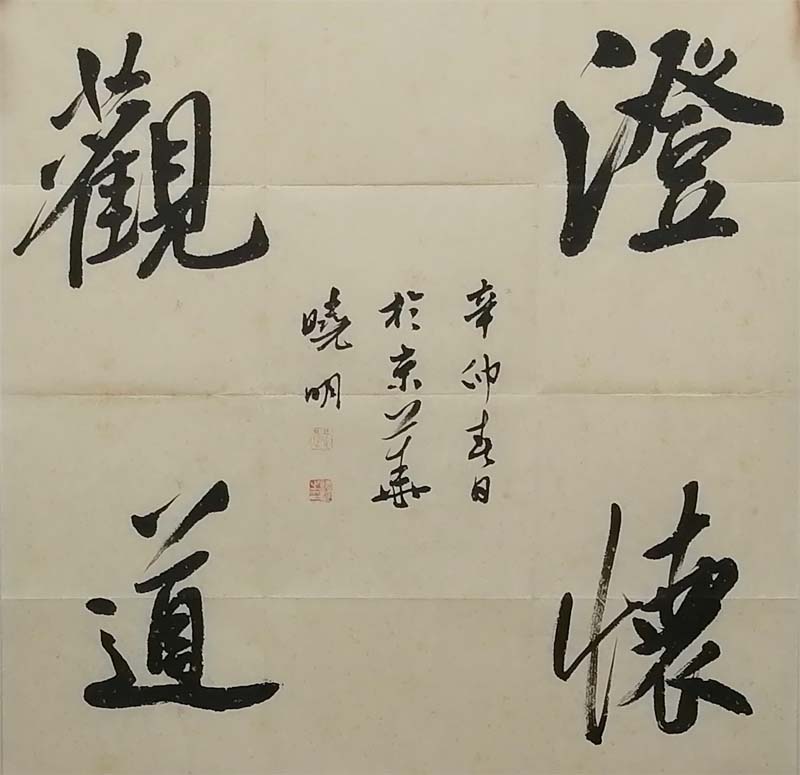 澄懷
觀道
辛卯春日
於京華
曉明